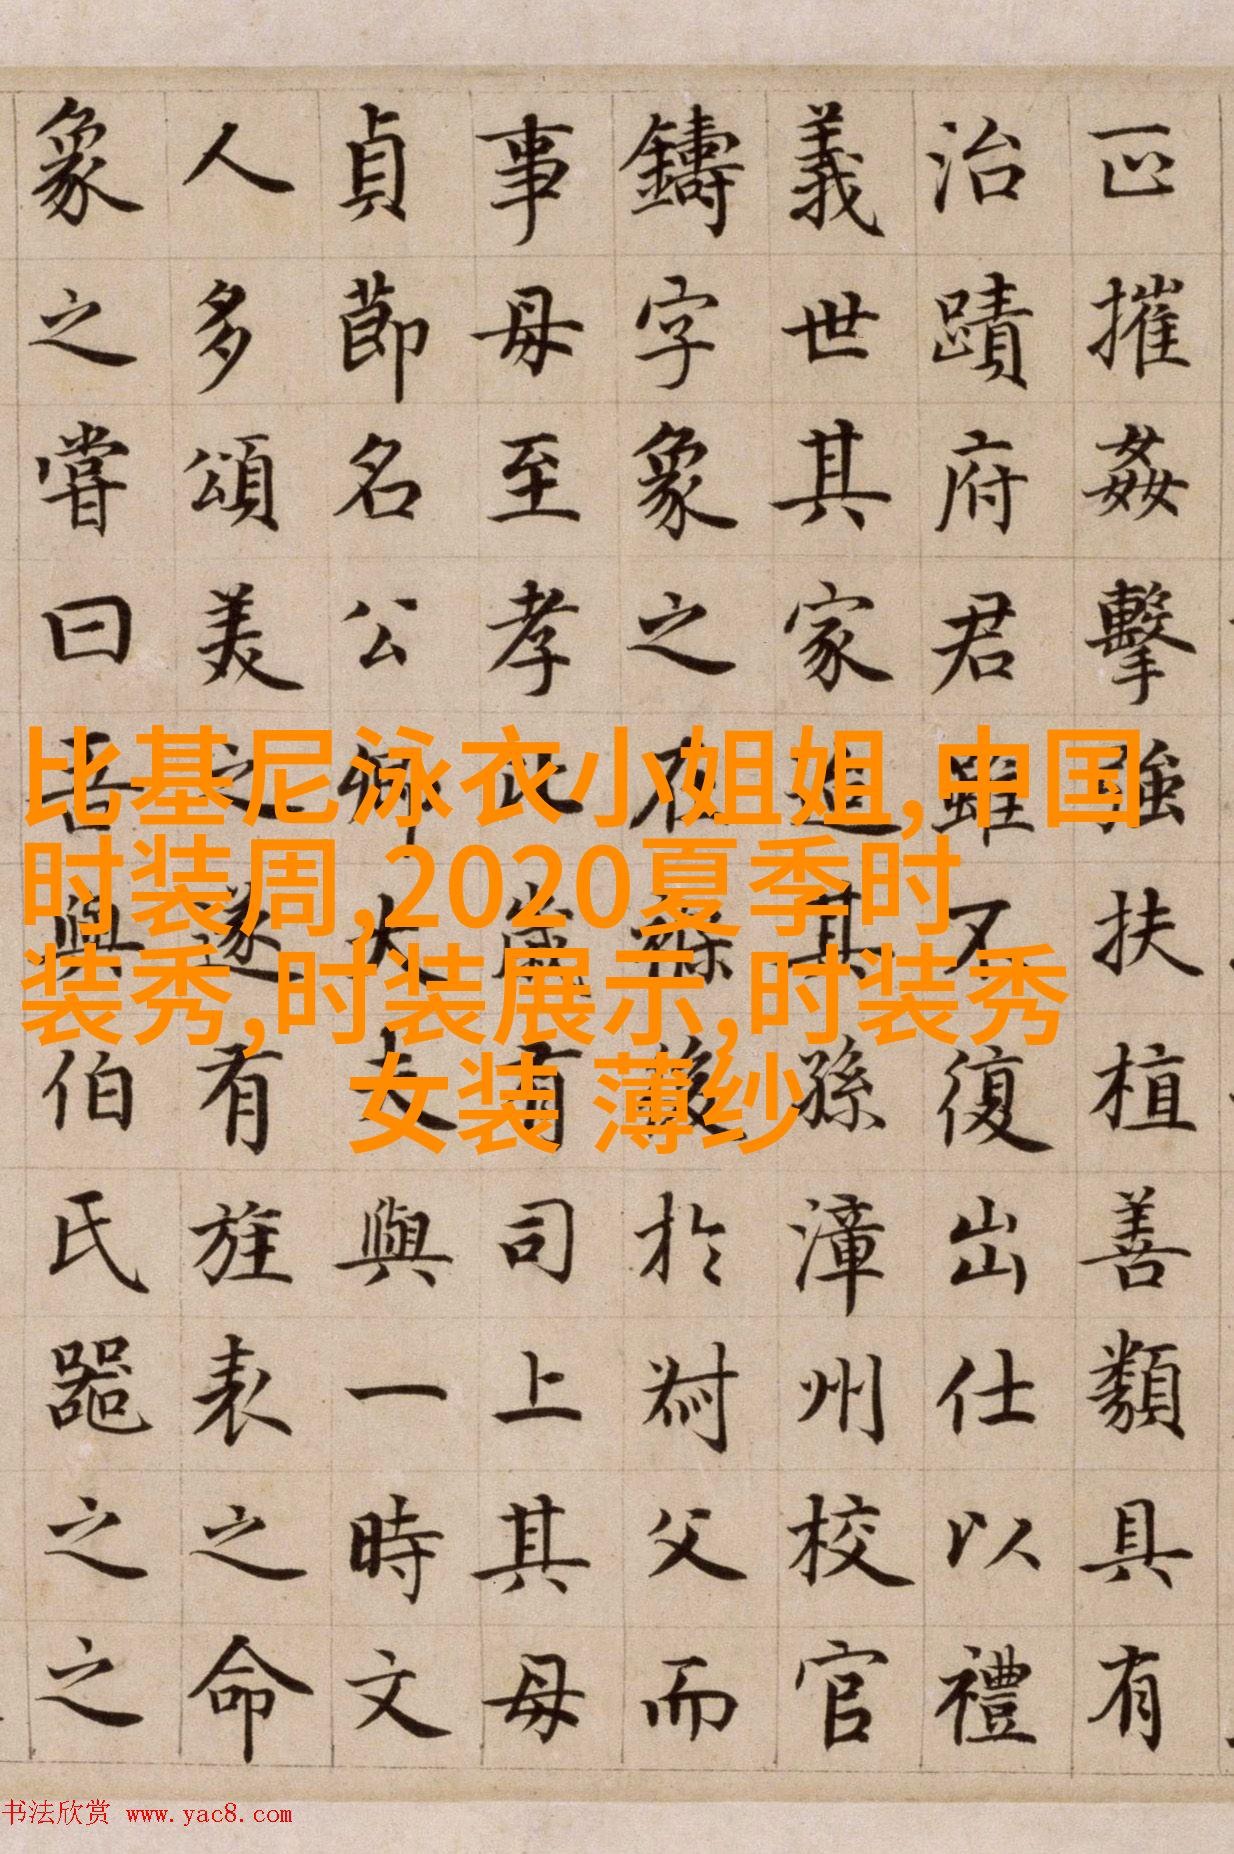 正摧姦擊強扶植善類具有
治蹟府君雖不復出仕以禮
義世其家造其孫漳州校官
鑄字象之在於父而
事母至孝比歲有司上其母
貞節名公卿大夫與一時文
人多頌美之遂有旌表之命
象之嘗曰吾與伯氏器之之
比基尼泳衣小姐姐,中国
时装周,2020夏季时
装秀,时装展示,时装秀
女装 薄纱
书法欣赏 www.yac8.com